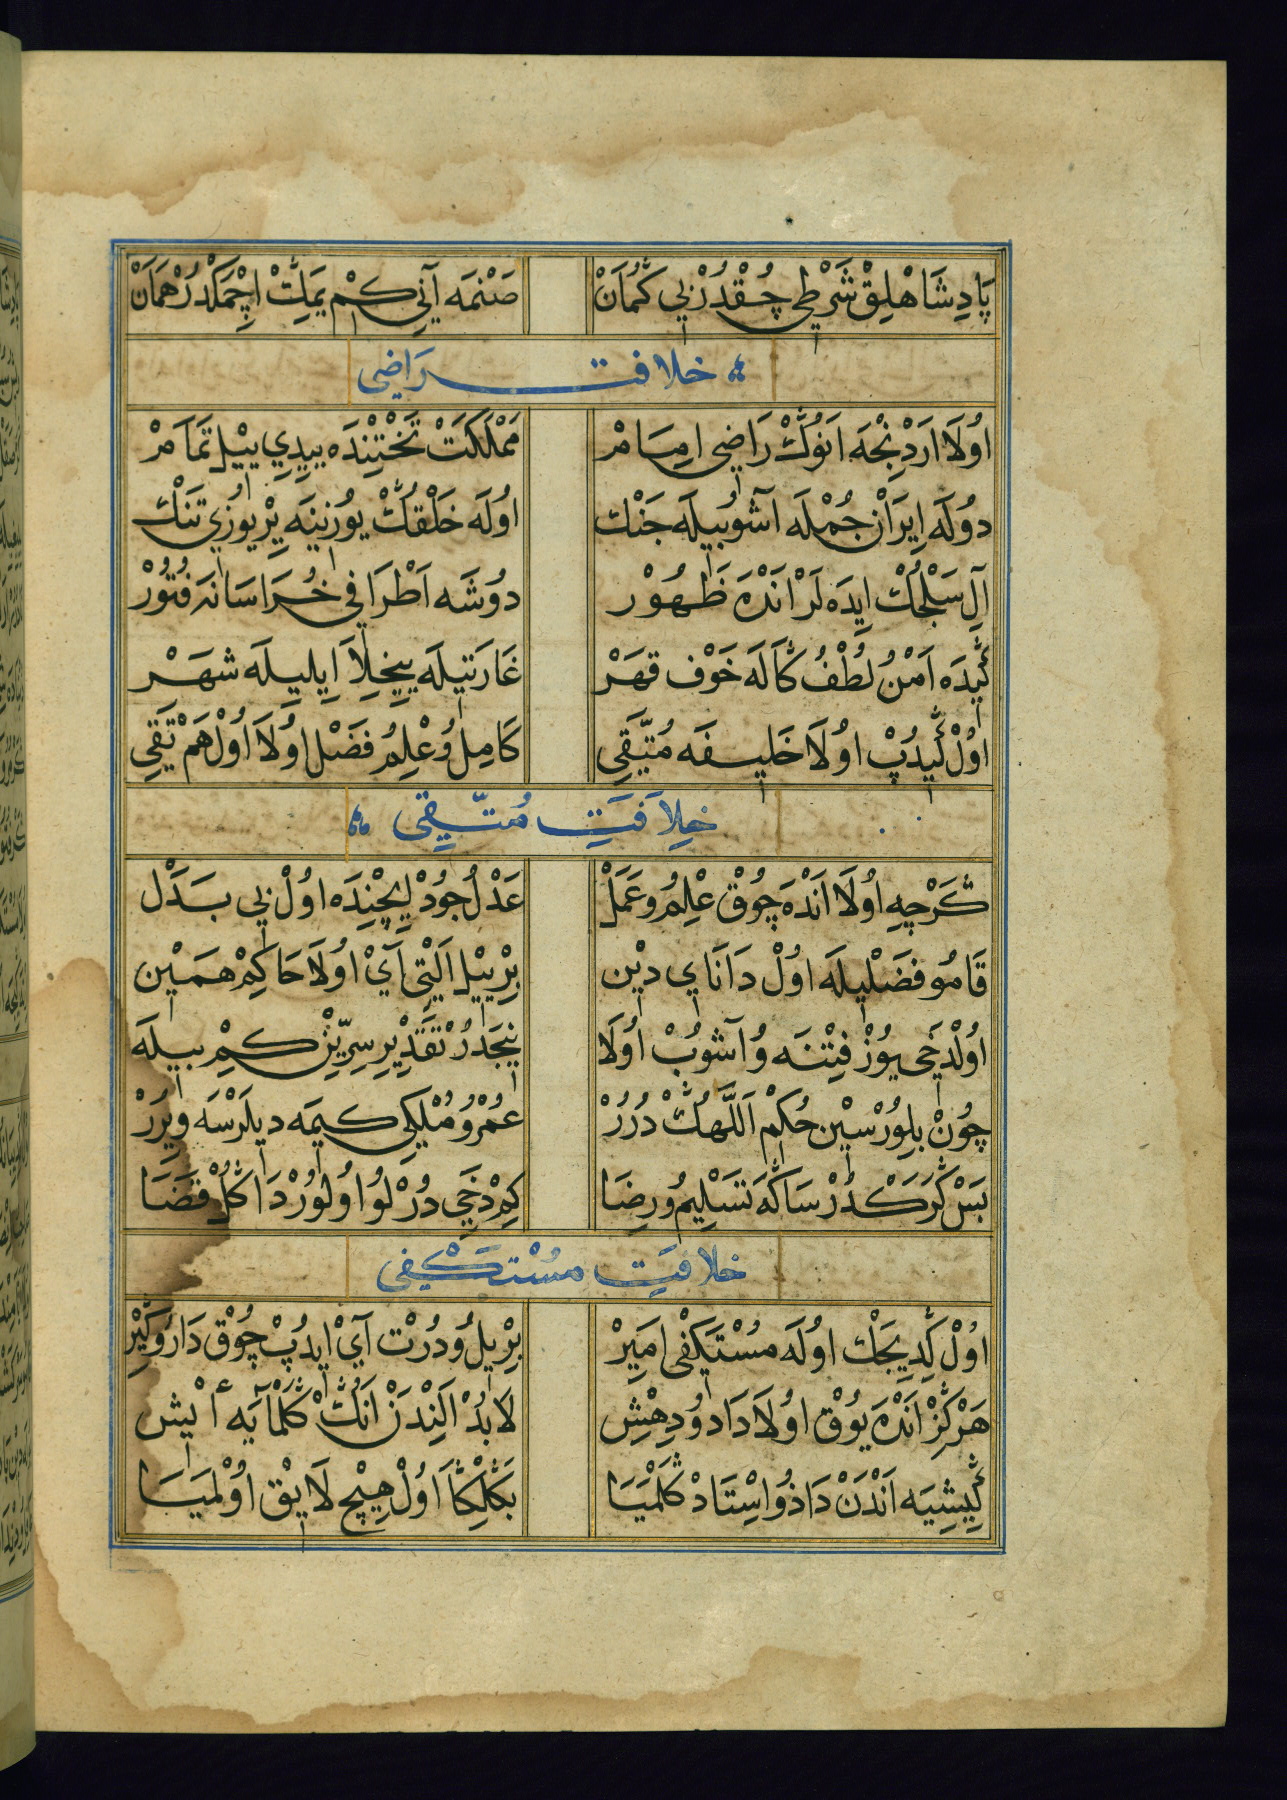 پَادِشَاهْلِقْ شَرْطِی چُقْدُرْ بِی گُمَانْ صَنْمَه آنِی كِمْ يَمَكِتْ اِچْمَكْدُرْ هَمَانْ
خلافت رَاضِی
اوُلَا اَرْدِنْجَه اَنوُڭْ رَاضِی اِمَامْ مَمْلَكَتْ تَخْتِنْدَه يِيدِي يِيْل تَمَامْ
دوُلَه اِيرَانْ جُمْلَه آشُوبيلَه جَنْك اوُلَه خَلْقُڭْ يوُزِينَه يِرْ يوُزِي تَنْك
آلِ سَلْجُكْ اِيدَه لَرْ اَنْدَه ظُهُوْر دوُشَه اَطْرَافِ خُرَاسَانَه فُتُوْر
گِيدَه اَمْنُ لُطْفُ گَالَه خَوْف قهَرْ غَارَتيلَه يِيخِلَا اِيليلَه شهَرْ
اوُلْ گِيدُپْ اوُلَا خَليفَه مُتَّقِي كَامِل وُ عْلِمُ فَضْل اوُلَا اوُلْ هَمْ تَقِي
خِلَافَتِ مُتَّقِی
گَرْچِه اوُلَا اَنْدَه چُوْق عْلِمُ و عَمَلْ عَدْلُ جُودْ اِيچِنْدَه اوُلْ بِی بَدَل
قَامُو فَضْليلَه اوُلْ دَانَايِ دِيْن بِرْ يِيْل اَلْتِی آيْ اوُلَا حَاكِمْ هَمِيْن
اوُلْدَخِی يوُزْ فِتْنَه وُ آشوُبْ اوُلَا نِيجَه دُرْ تَقْدِيرِ سِرِّيْن كِمْ بيلَه
چُونْ بِلوُرْسِيْن حُكِمْ اَللَّهُڭْ دُرُرْ عُمْرُ وُ مُلْكِی كيمَه ديلَرْسَه ويرُرْ
بَسْ گَرَكْدُرْ سَاڭَه تَسْلِيمُ و رِضَا كِمْ دَخِي دُرْلُو اوُلوُرْ دَاڭُلْ قَضَا
خلافَتِ مُسْتَكْفِی
اوُلْ گِدِيجَكْ اوُلَه مُسْتَكْفِی اَمِيْر بِرْ يِل وُ دُرْت آيْ ايدُپْ چُوْق دَارُ وَگِيْر
هَرْگِزْ اَنْدَه يوُق اوُلَا دَادُ و دِهِش لَا بُدْ اَلِنْدَنْ اَنُڭْ گَلْمَايَه اْيش
گِيشِيَه اَنْدَنْ دَاذُ و اسْتَادْ گَلْمَيَا بَگْلِگَا اوُلْ هِيچْ لَايِق اوُلْمَيَا